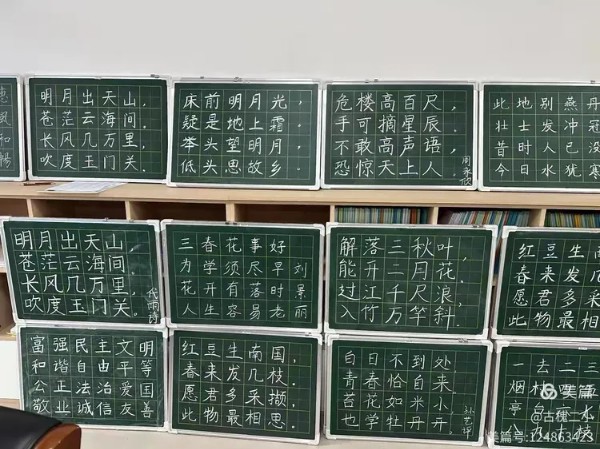 惠
风
和
畅
明月出天山,
苍茫云海间.
长风几万里,
吹度玉门关.
床前明月光,
疑是地上霜
举头望明月,
低头思故乡.
危楼高百尺,
手可摘星辰.
不敢高声语,
恐惊天上人.
此地别燕丹
壮士发冲冠
昔时人已没
今日水犹寒
明月出天山
苍茫云海间.
长风几万里,
吹度玉门关.
三春花事好
为学须尽早
花开有落时
人生容易老
刘景丽
解落三秋叶,
能开二月花.
过江千尺浪,
入竹万竿斜.
红豆生南
春来发几
愿君多采
此物最相
富强民主文明
和谐自由平等
公正法治爱国
敬业诚信友善
红豆生南国,
春来发几枝.
愿君多采撷,
此物最相思.
白日不到处
青春恰自来
苔花如米小
也学牡丹开
一去二三
烟村四五
亭台六
八九十枝
美篇
@古槐二小
美篇号:124863423